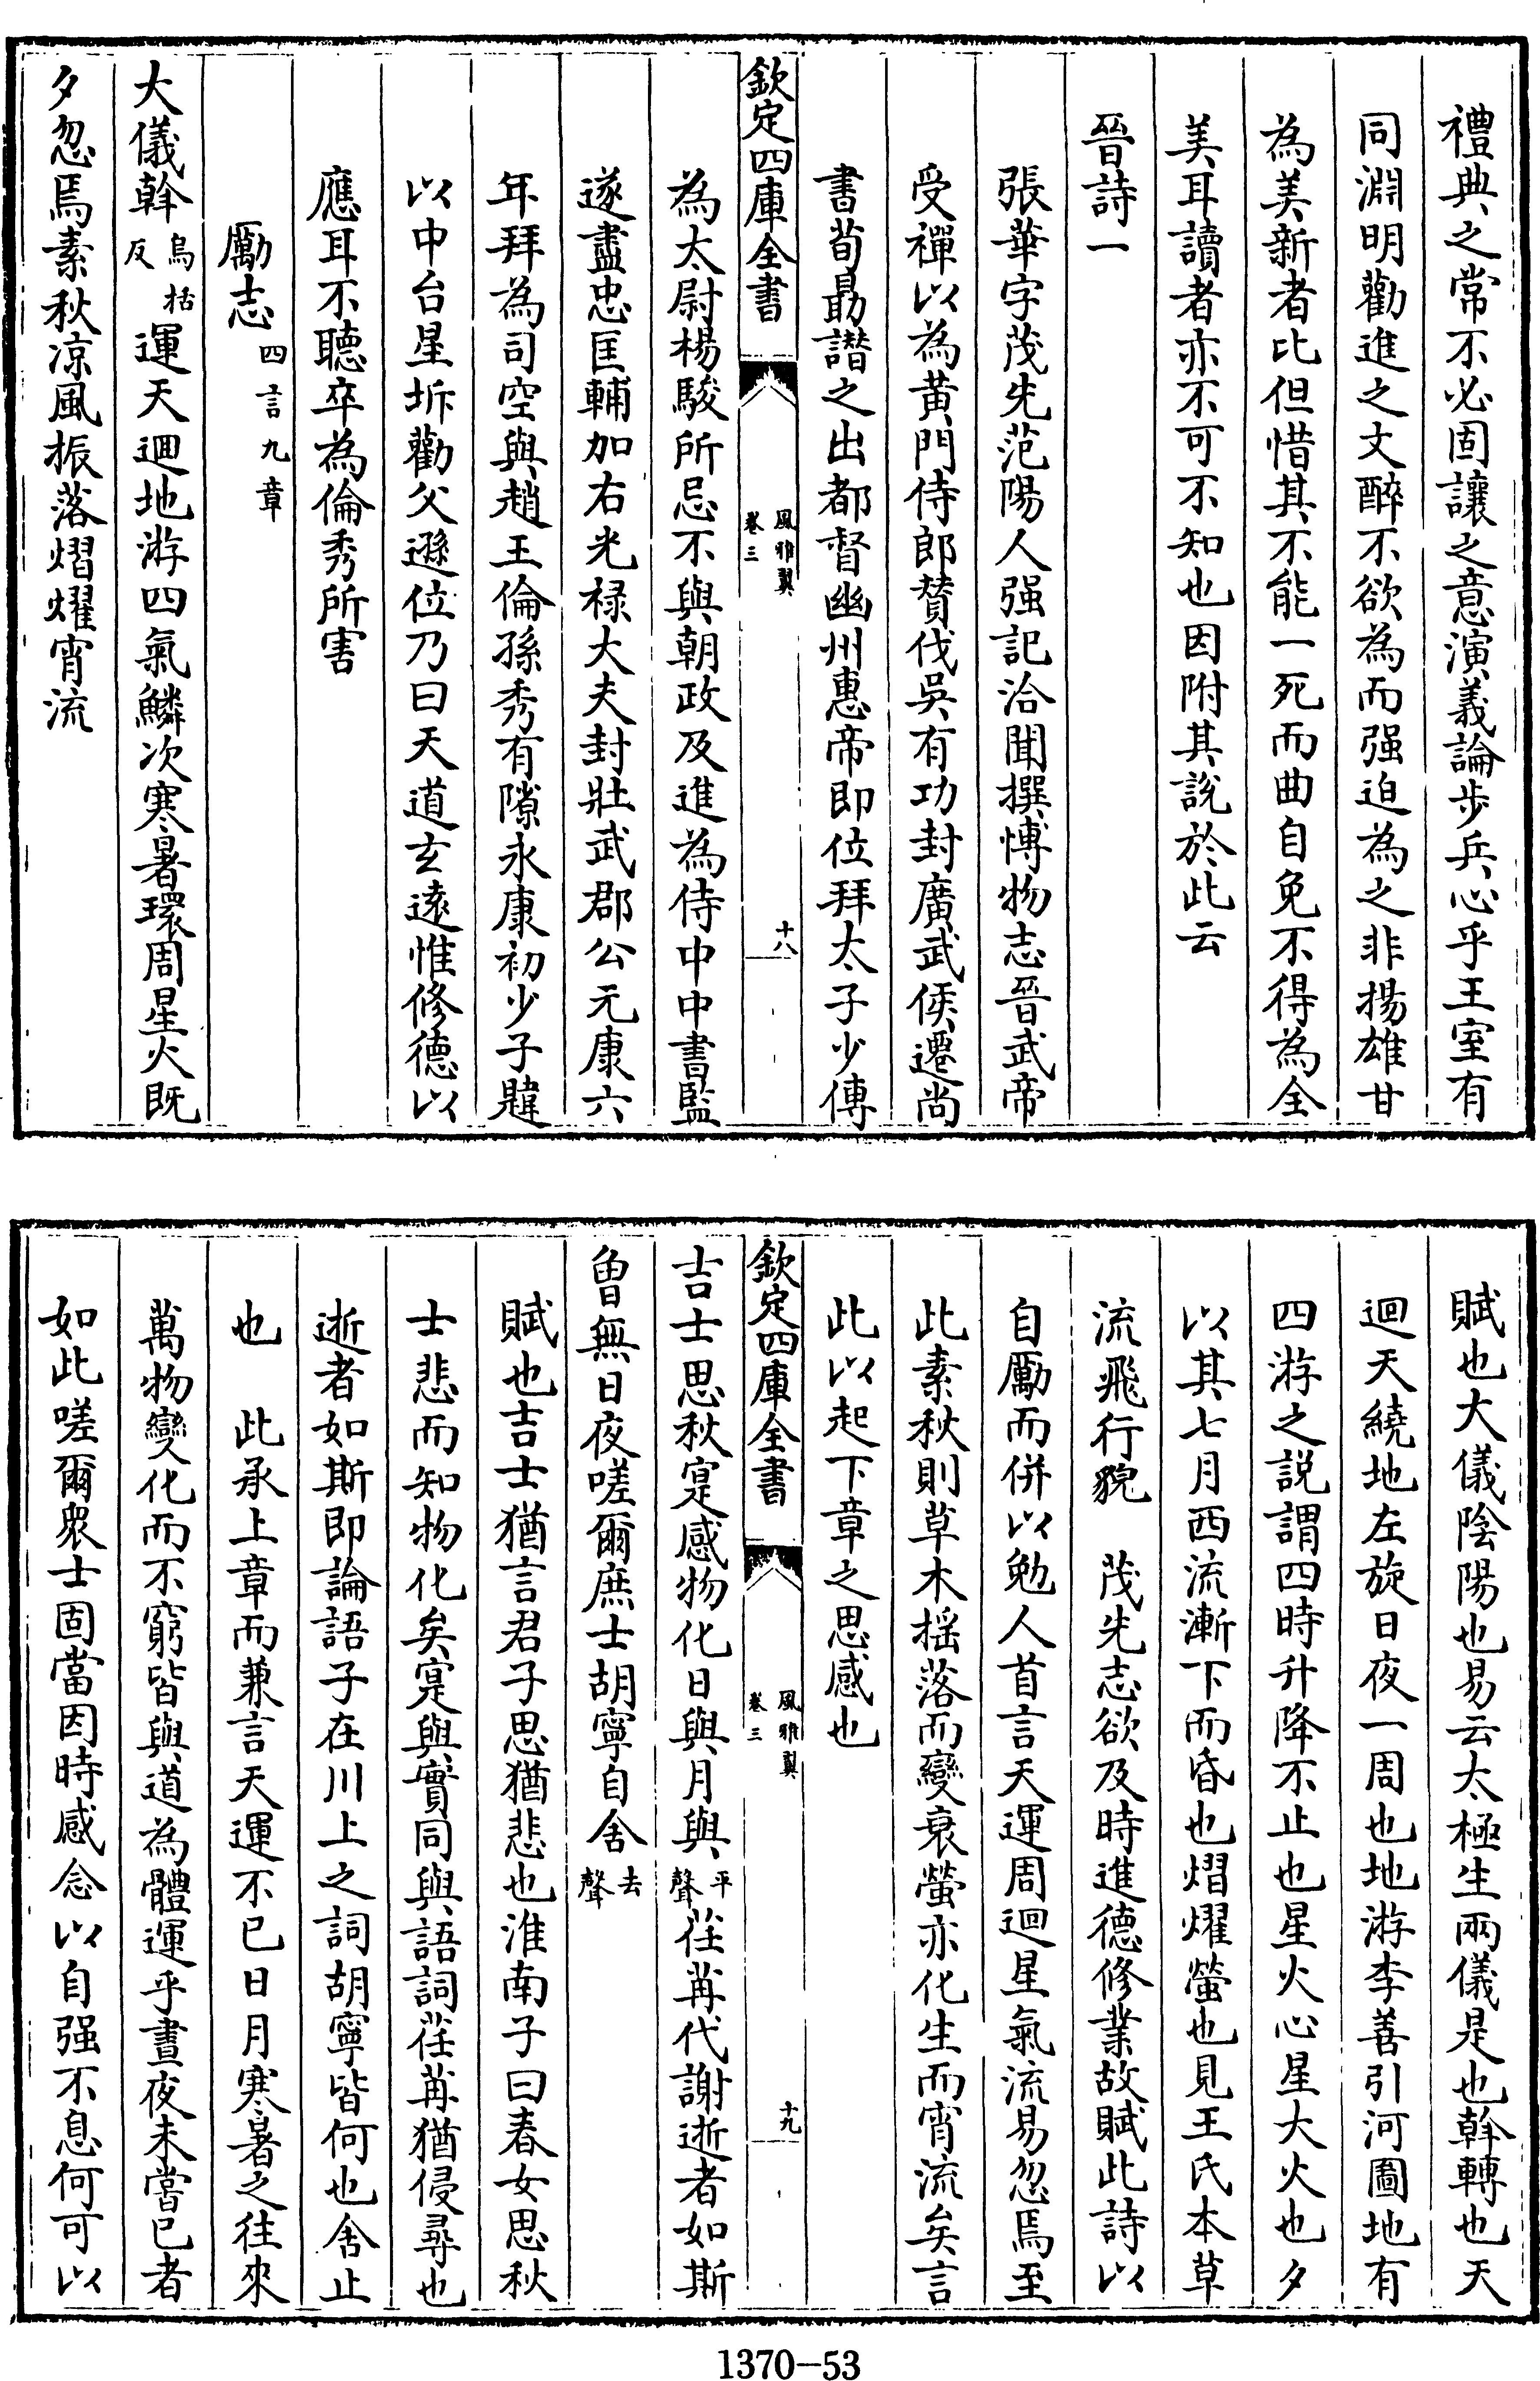 禮典之常不必固讓之意演義論步兵心乎王室有
同淵明勸進之文醉不欲為而强迫為之非揚雄甘
為美新者比但惜其不能一死而曲自免不得為全
美耳讀者亦不可不知也因附其說於此云
晉詩一
張華字茂先范陽人强記洽聞撰愽物志晉武帝
受禪以為黄門侍郎賛伐吳有功封廣武侯遷尚
書荀勗譖之出都督幽州惠帝即位拜太子少傅
欽定四庫全書 風雅翼 卷三 十八
為太尉楊駿所忌不與朝政及進為侍中中書監
遂盡忠匡輔加右光祿大夫封壯武郡公元康六
年拜為司空與趙王倫孫秀有隙永康初少子韙
以中台星坼勸父遜位乃曰天道玄遠惟修德以
應耳不聽卒為倫秀所害
勵志四言九章
大儀斡烏栝反運天迴地游四氣鱗次寒暑環周星火既
夕忽焉素秋凉風振落熠燿宵流
賦也大儀陰陽也易云太極生兩儀是也斡轉也天
迴天繞地左旋日夜一周也地游李善引河圖地有
四游之說謂四時升降不止也星火心星大火也夕
以其七月西流漸下而昏也熠燿螢也見王氏本草
流飛行貌 茂先志欲及時進德修業故賦此詩以
自勵而併以勉人首言天運周迴星氣流易忽焉至
此素秋則草木揺落而變衰螢亦化生而宵流矣言
此以起下章之思感也
欽定四庫全書 風雅翼 卷三 十九
吉士思秋寔感物化日與月與平聲荏苒代謝逝者如斯
曾無日夜嗟爾庶士胡寧自舍去聲
賦也吉士猶言君子思猶悲也淮南子曰春女思秋
士悲而知物化矣寔與實同與語詞荏苒猶侵尋也
逝者如斯即論語子在川上之詞胡寧皆何也舍止
也 此承上章而兼言天運不已日月寒暑之往來
萬物變化而不窮皆與道為體運乎晝夜未嘗已者
如此嗟爾衆士固當因時感念以自强不息何可以
1370-53